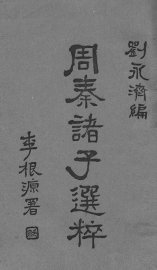 劉永濟編
周秦諸子選粹
李根源署